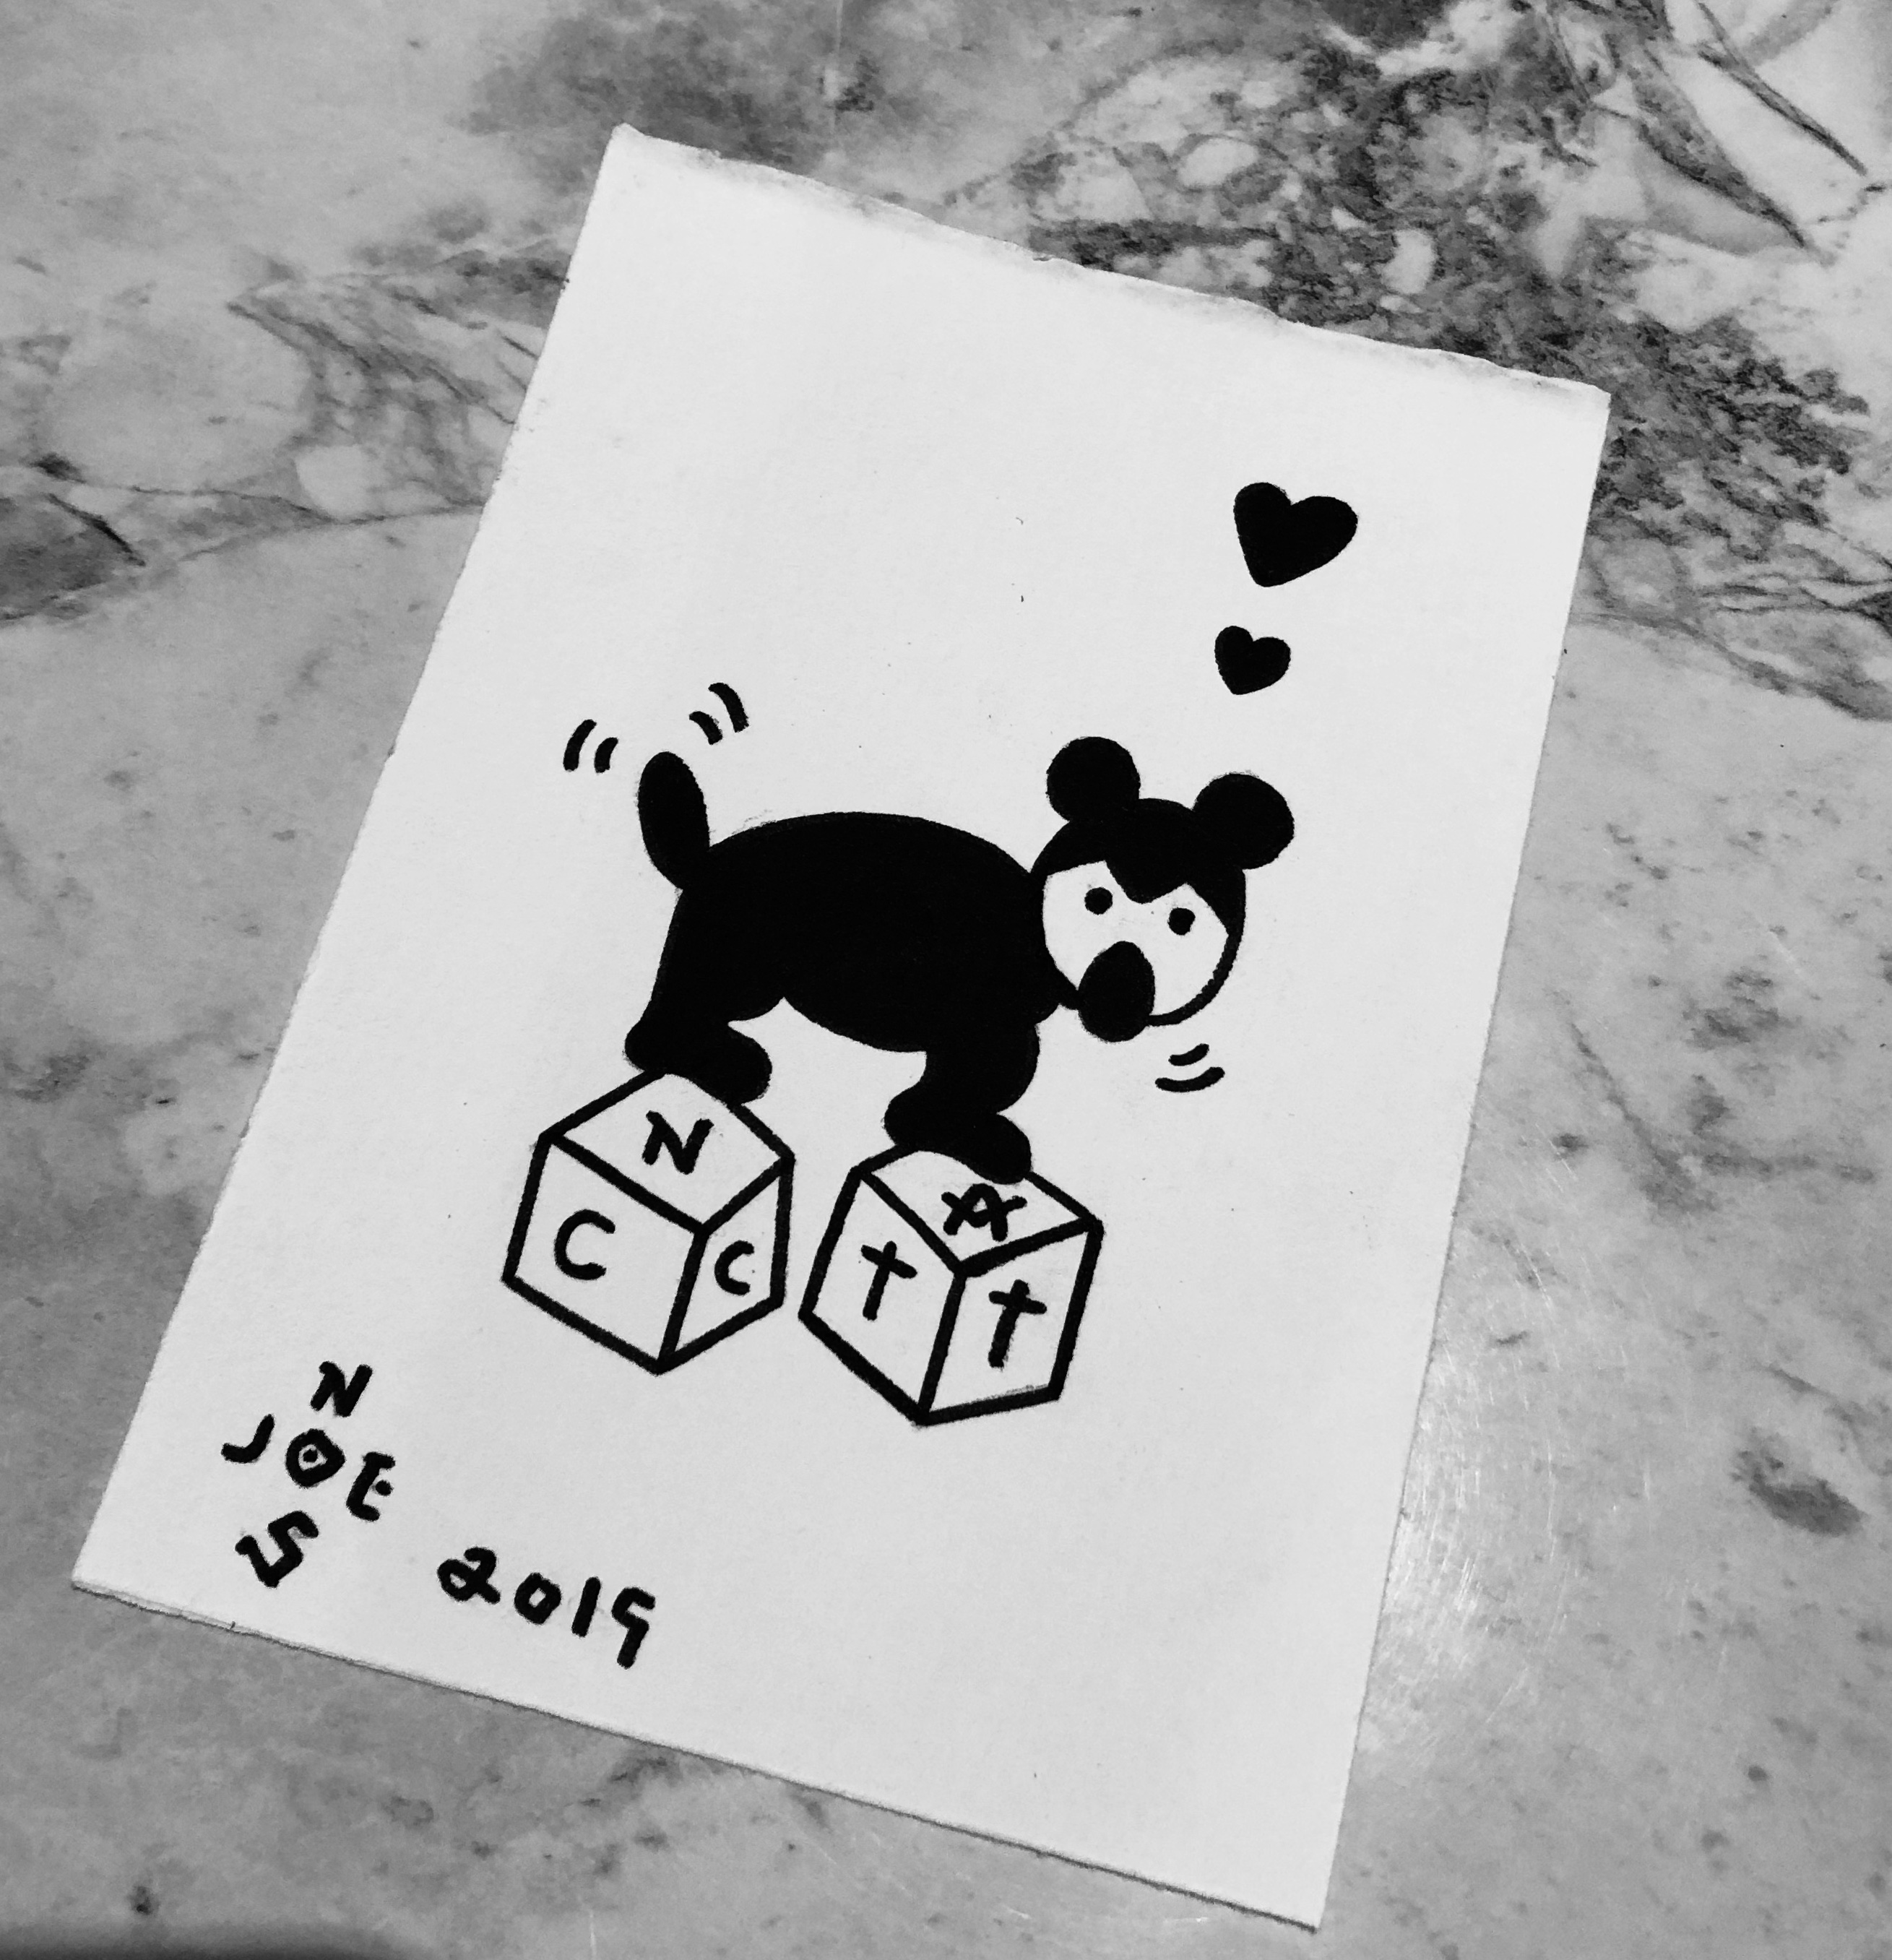 N A
C C T T
N
JOE
S
2019